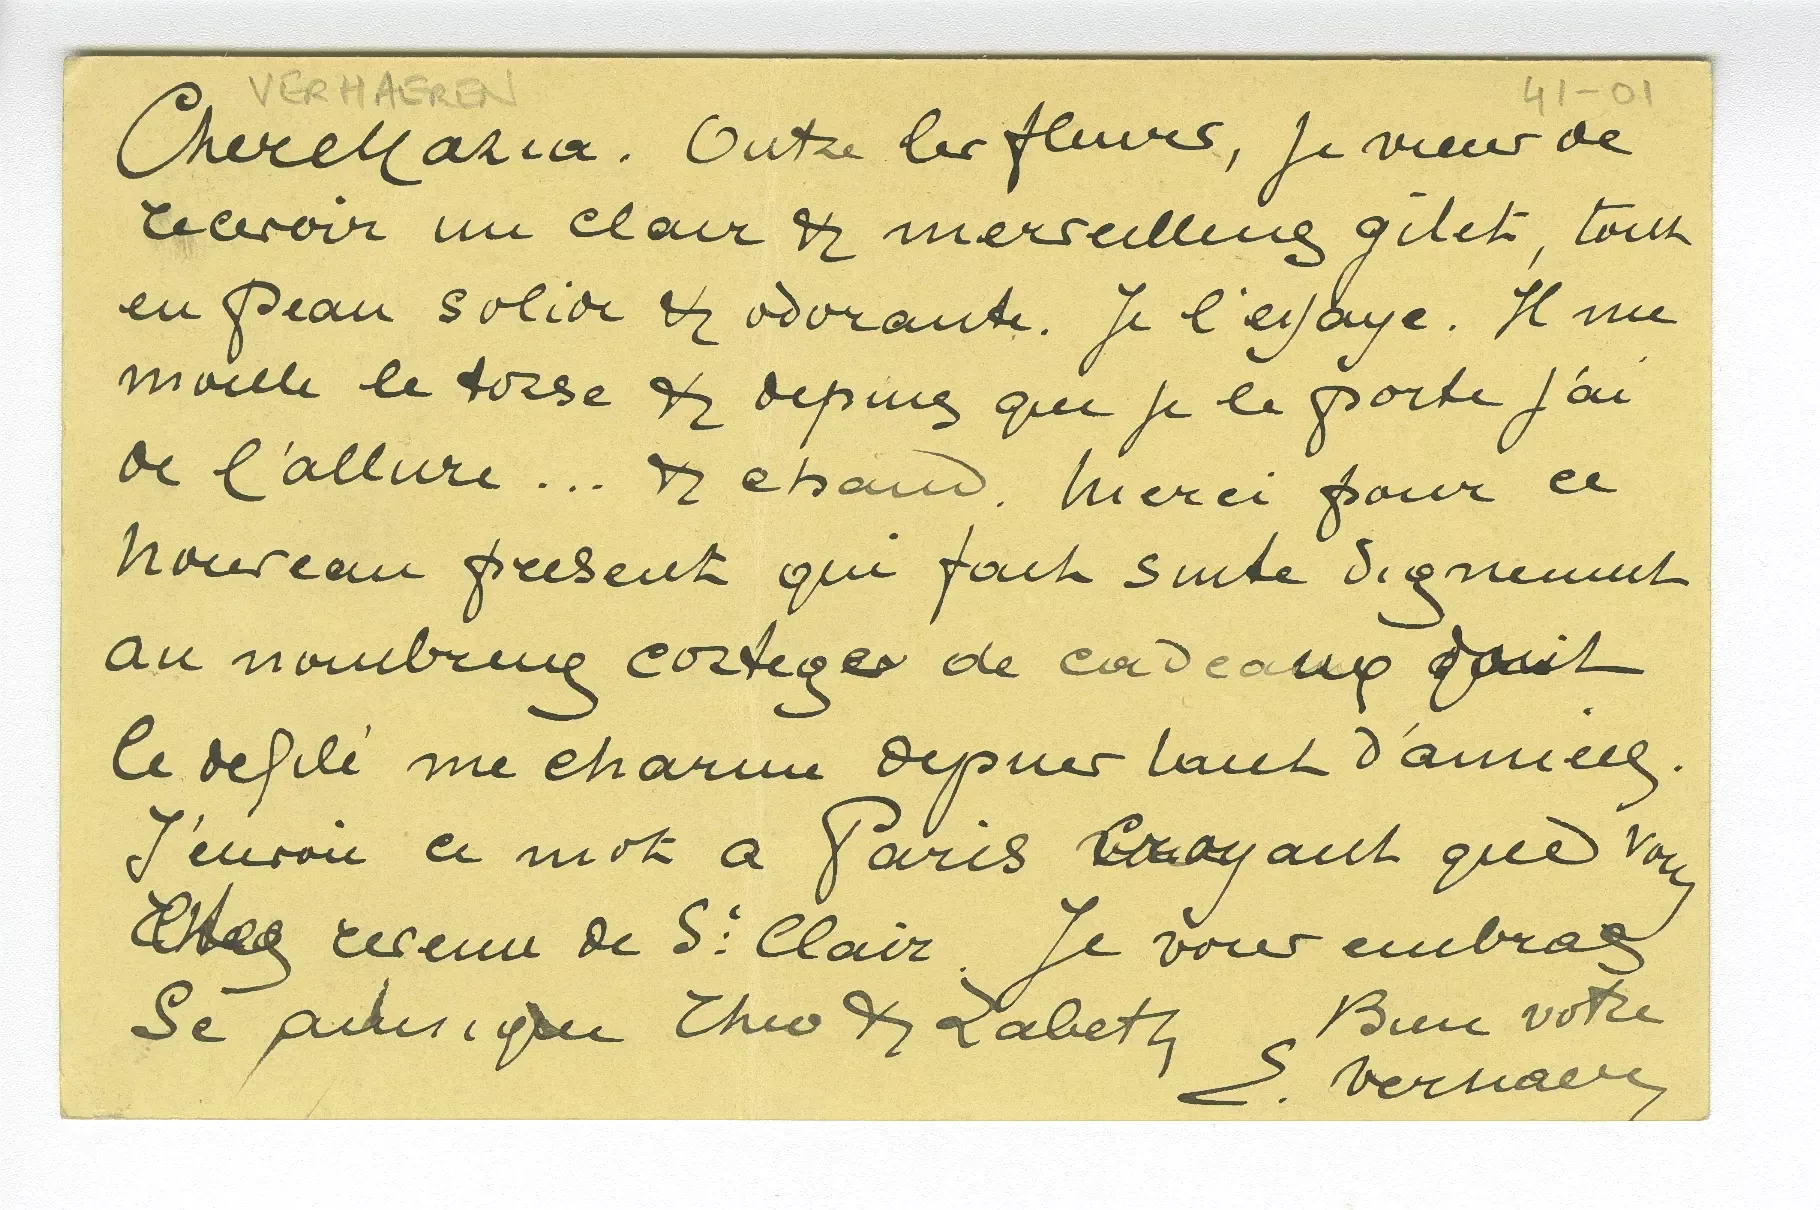 VERHAEREN
41-01
Chere Maria. Outre les fleurs, je viens de
recevoir un clair & merveilleux gilet, tout
en peau solide & odorante. Je l'essaye. Il me
moule le torse & depuis que je le porte j'ai
de l'allure ... & chaud. Merci pour ce
nouveau present qui fait suite dignement
au nombreux cortege de cadeaux dont
le defilé me charme depuis tant d'années.
J'envoie ce mot a Paris croyant que vous
etes revenu de St Clair. Je vous embras
se ainsi que Theo & Zabeth Bien votre
E. Verhaeren